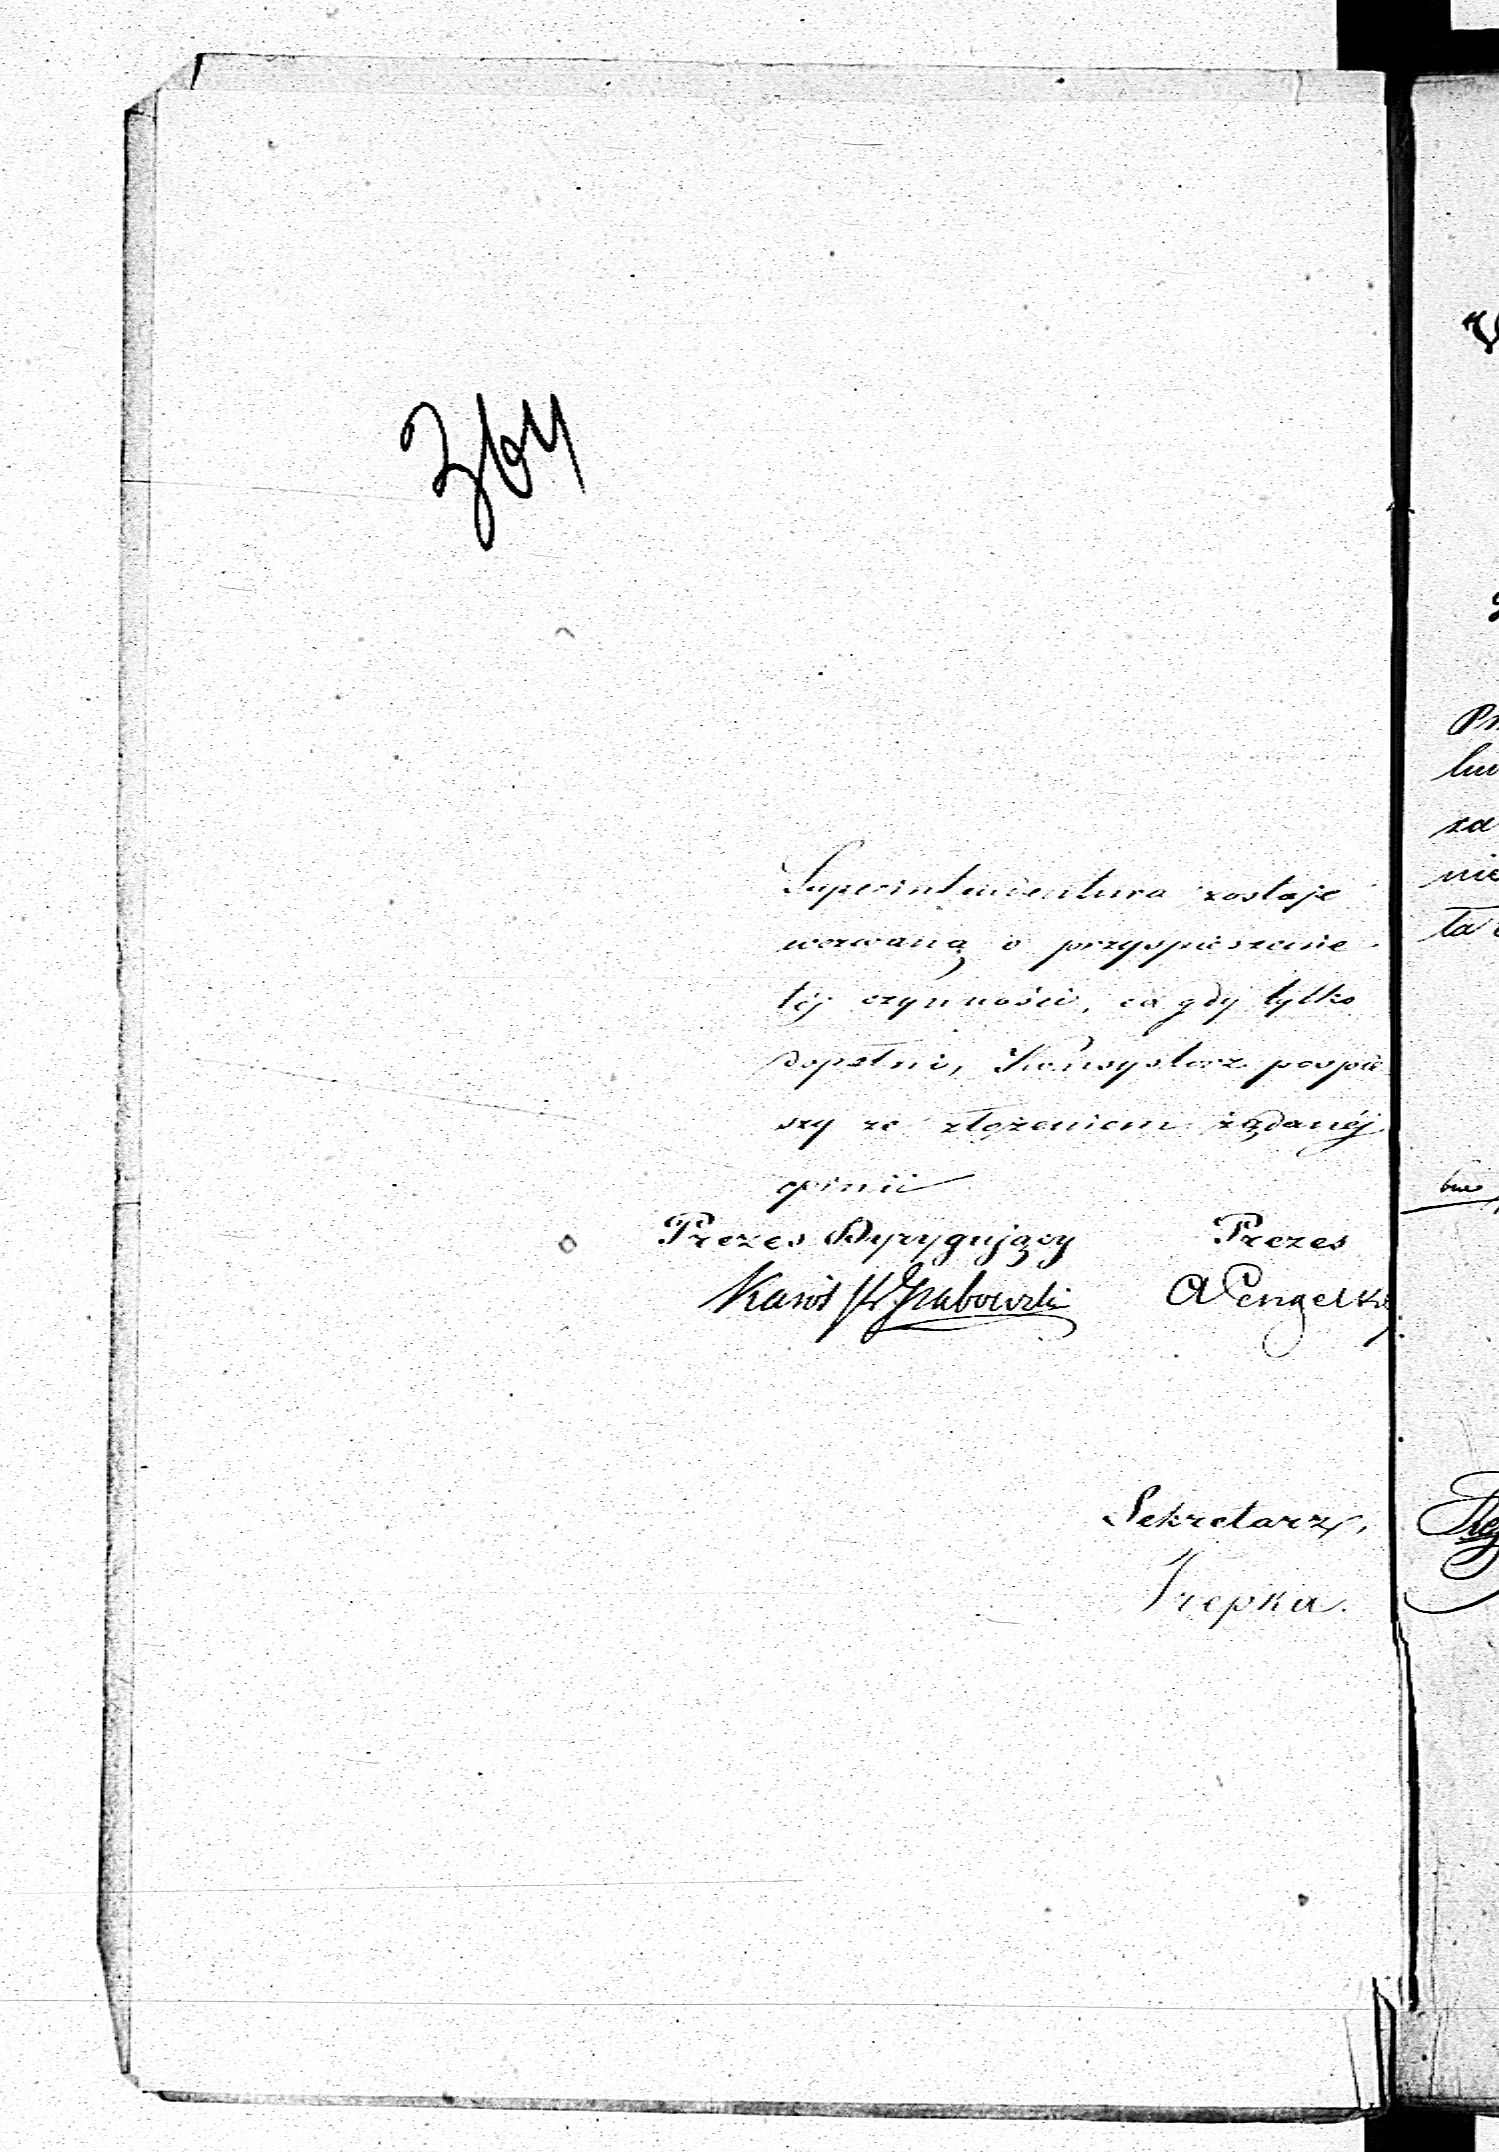 364
Superintendentura zostaje
wezwaną o przyspieszenie
téj czynności, co gdy tylko
dopełni, Konsystorz pospie
szy ze złożeniem żądanéj
opinii
Prezes Dyrygujący Prezes
Karól Grabowski A Pengelki
Sekretarz,
Trepka.